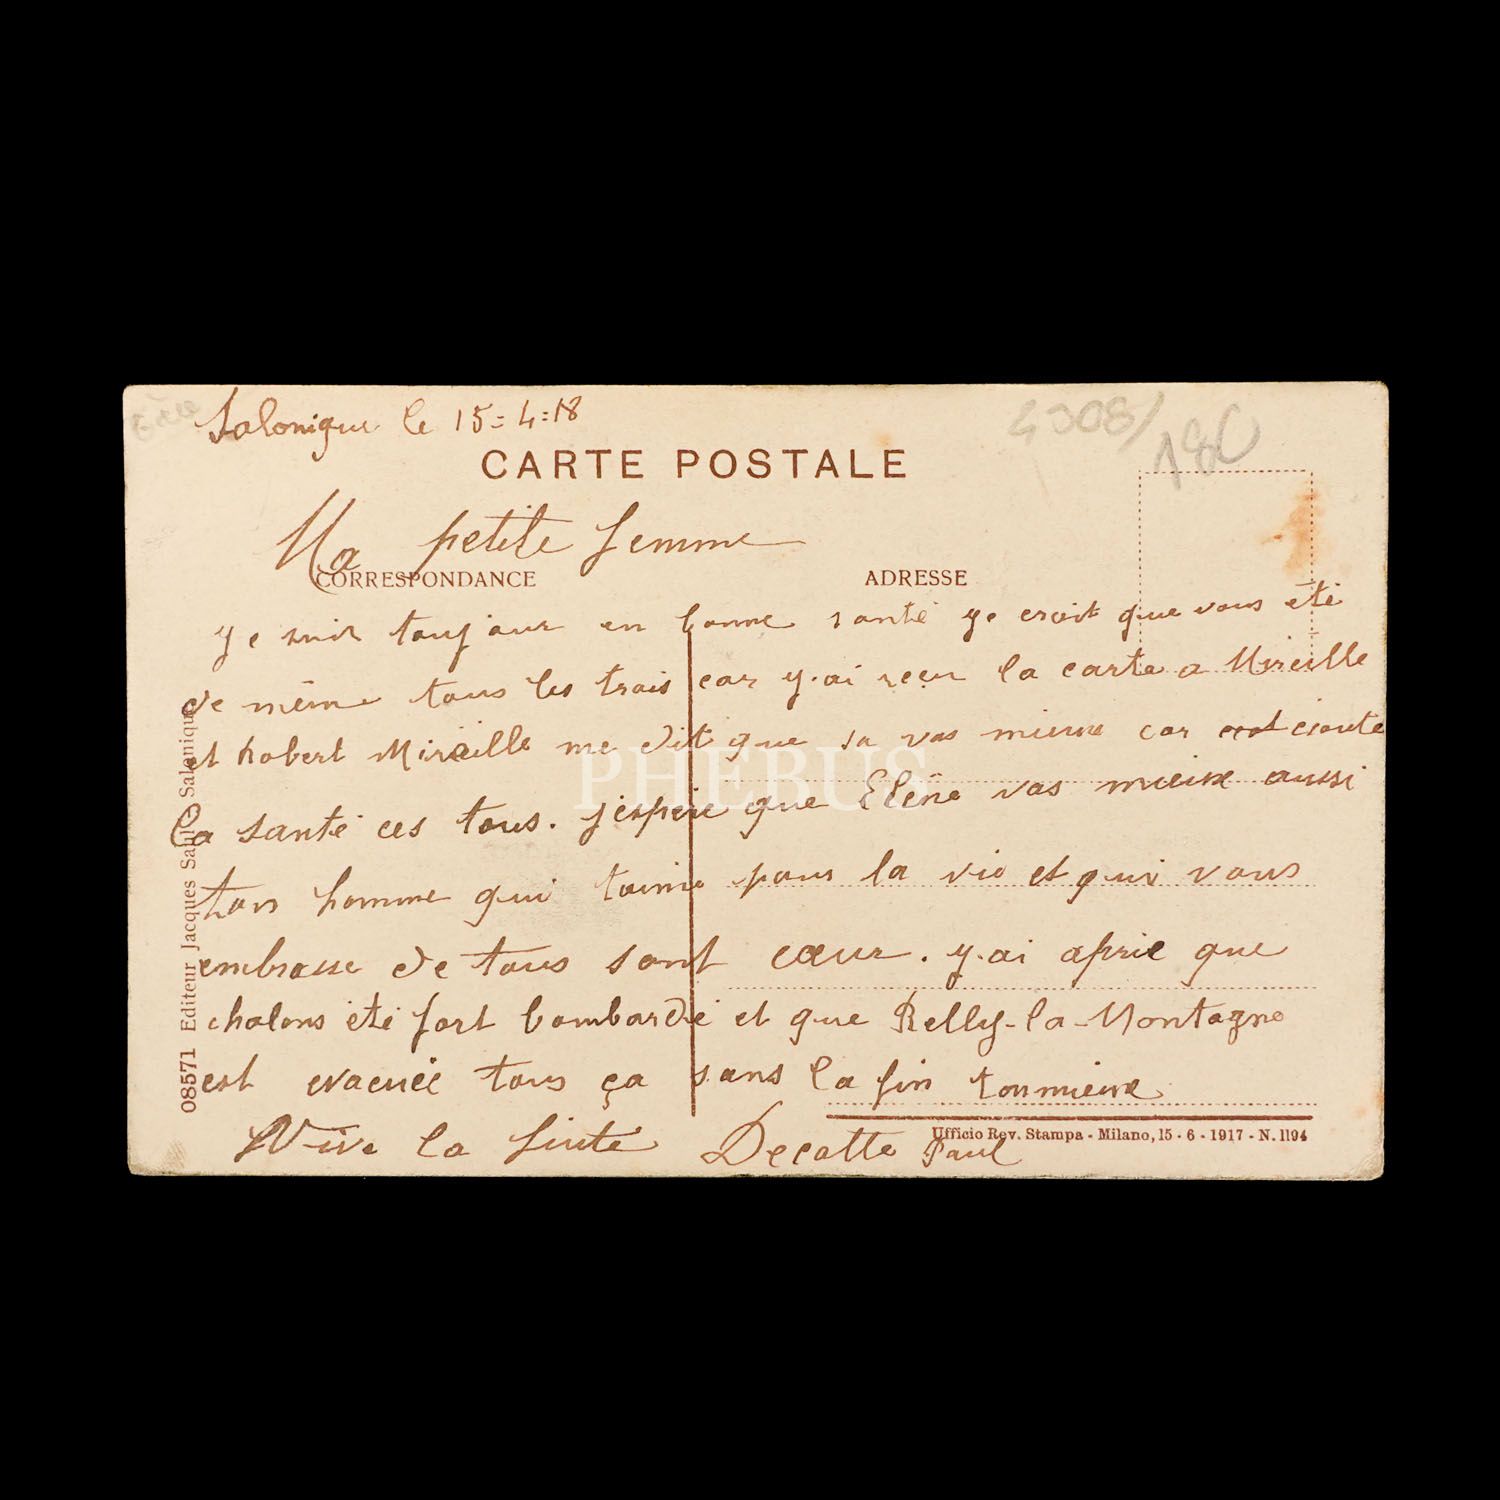 Salonique le 15=4=18
4308/
180
CARTE POSTALE
Ma petite femme
CORRESPONDANCE
ADRESSE
ye suis toujour en bonne santé ye croit que vous été
de même tous les trois car y.ai reçu la carte a Mireille
et Robert Mireille me dit que sa vas mieux car écoute
PHEBUS
la santé ces tous. j'espère que Elène vas mieux aussi
ton homme qui t'aime pour la vie et qui vous
embrasse de tous sont cœur. y.ai apris que
chalons été fort bombardé et que Relly-la-Montagne
est evacuée tous ça sans la fin
Vive la Decotte Paul
Ufficio Rev. Stampa - Milano, 15 - 6 - 1917 - N. 1194
08571 Editeur Jacques Saul - Salonique